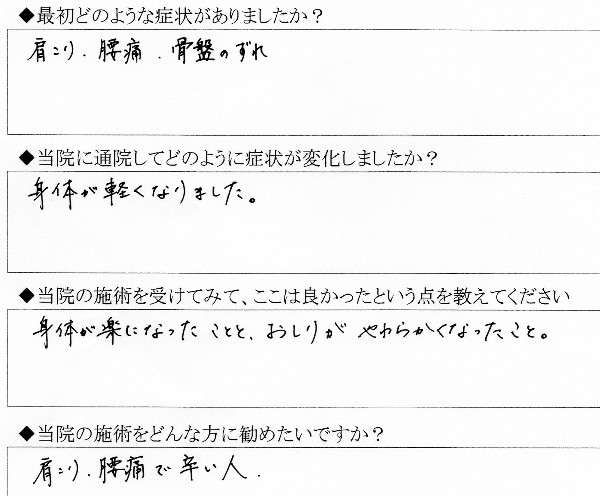 ◆最初どのような症状がありましたか？
肩こり．腰痛．骨盤のずれ
◆当院に通院してどのように症状が変化しましたか？
身体が軽くなりました。
◆当院の施術を受けてみて、ここは良かったという点を教えてください
身体が楽になったことと、おしりがやわらかくなったこと。
◆当院の施術をどんな方に勧めたいですか？
肩こり．腰痛で辛い人．